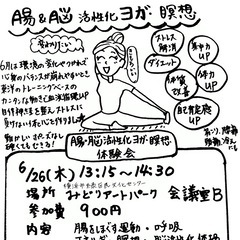 腸&脳 活性化 ヨガ・瞑想
変わりたい
ストレス解消
集中力UP
ダイエット
体質改善
体力UP
自己肯定感UP
6月は環境の変化やつかれで
心身のバランスが崩れやすいとき
東洋のトレーニングベースの
カンタンな動きで血流循環UP
自律神経を整えストレスに
負けない柔和な心と体を作る
難かしいポーズなし
硬くてもむくも!
腸・脳活性化ヨガ・瞑想
体験会
6/26(木) 13:15~14:30
場所 みどりアートパーク 会議室B
参加費 900円
内容 腸をほぐす運動・呼吸